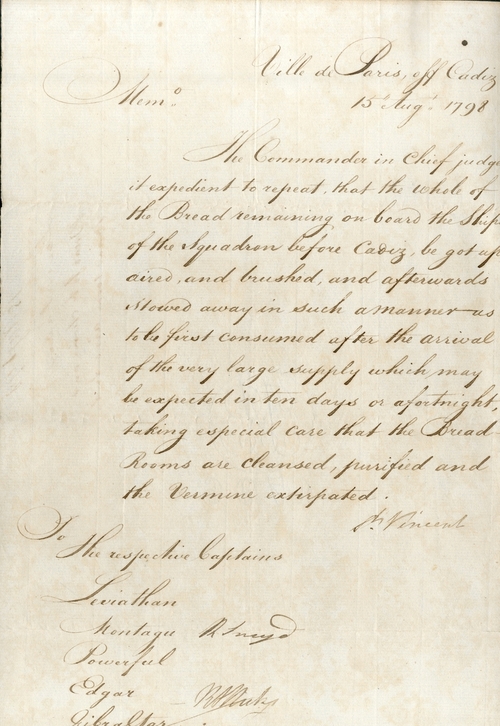 Ville de Paris, off Cadiz
15th Augt 1798
Memo
The Commander in Chief judges
it expedient to repeat, that the whole of
the Bread remaining on board the Ships
of the Squadron before Cadiz, be got up
aired, and brushed, and afterwards
stowed away in such a manner as
to be first consumed after the arrival
of the very large supply which may
be expected in ten days or a fortnight
taking especial care that the Bread
Rooms are cleansed, purified and
the Vermine extirpated.
St Vincent
To
The respective Captains
Leviathan
Montagu
Powerful
Edgar
Gibraltar